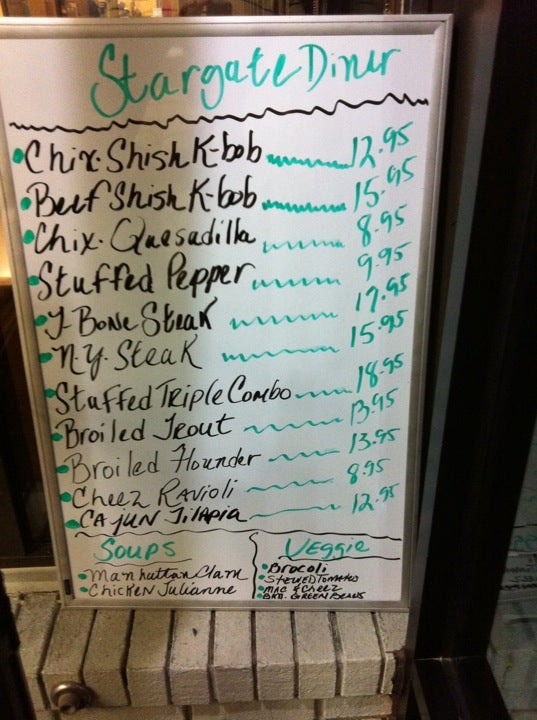 Stargate Diner
Chix. Shish K-bob 12.95
Beef Shish K-bob 15.95
Chix. Quesadilla 8.95
Stuffed Pepper 9.95
T-Bone Steak 17.95
N.Y. Steak 15.95
Stuffed Triple Combo 18.95
Broiled Trout 13.95
Broiled Flounder 13.95
Cheez Ravioli 8.95
Cajun Tilapia 12.95
Soups
Manhattan Clam
Chicken Julianne
Veggie
Brocoli
Stewed Tomatoes
Mac & Cheez
Green Beans